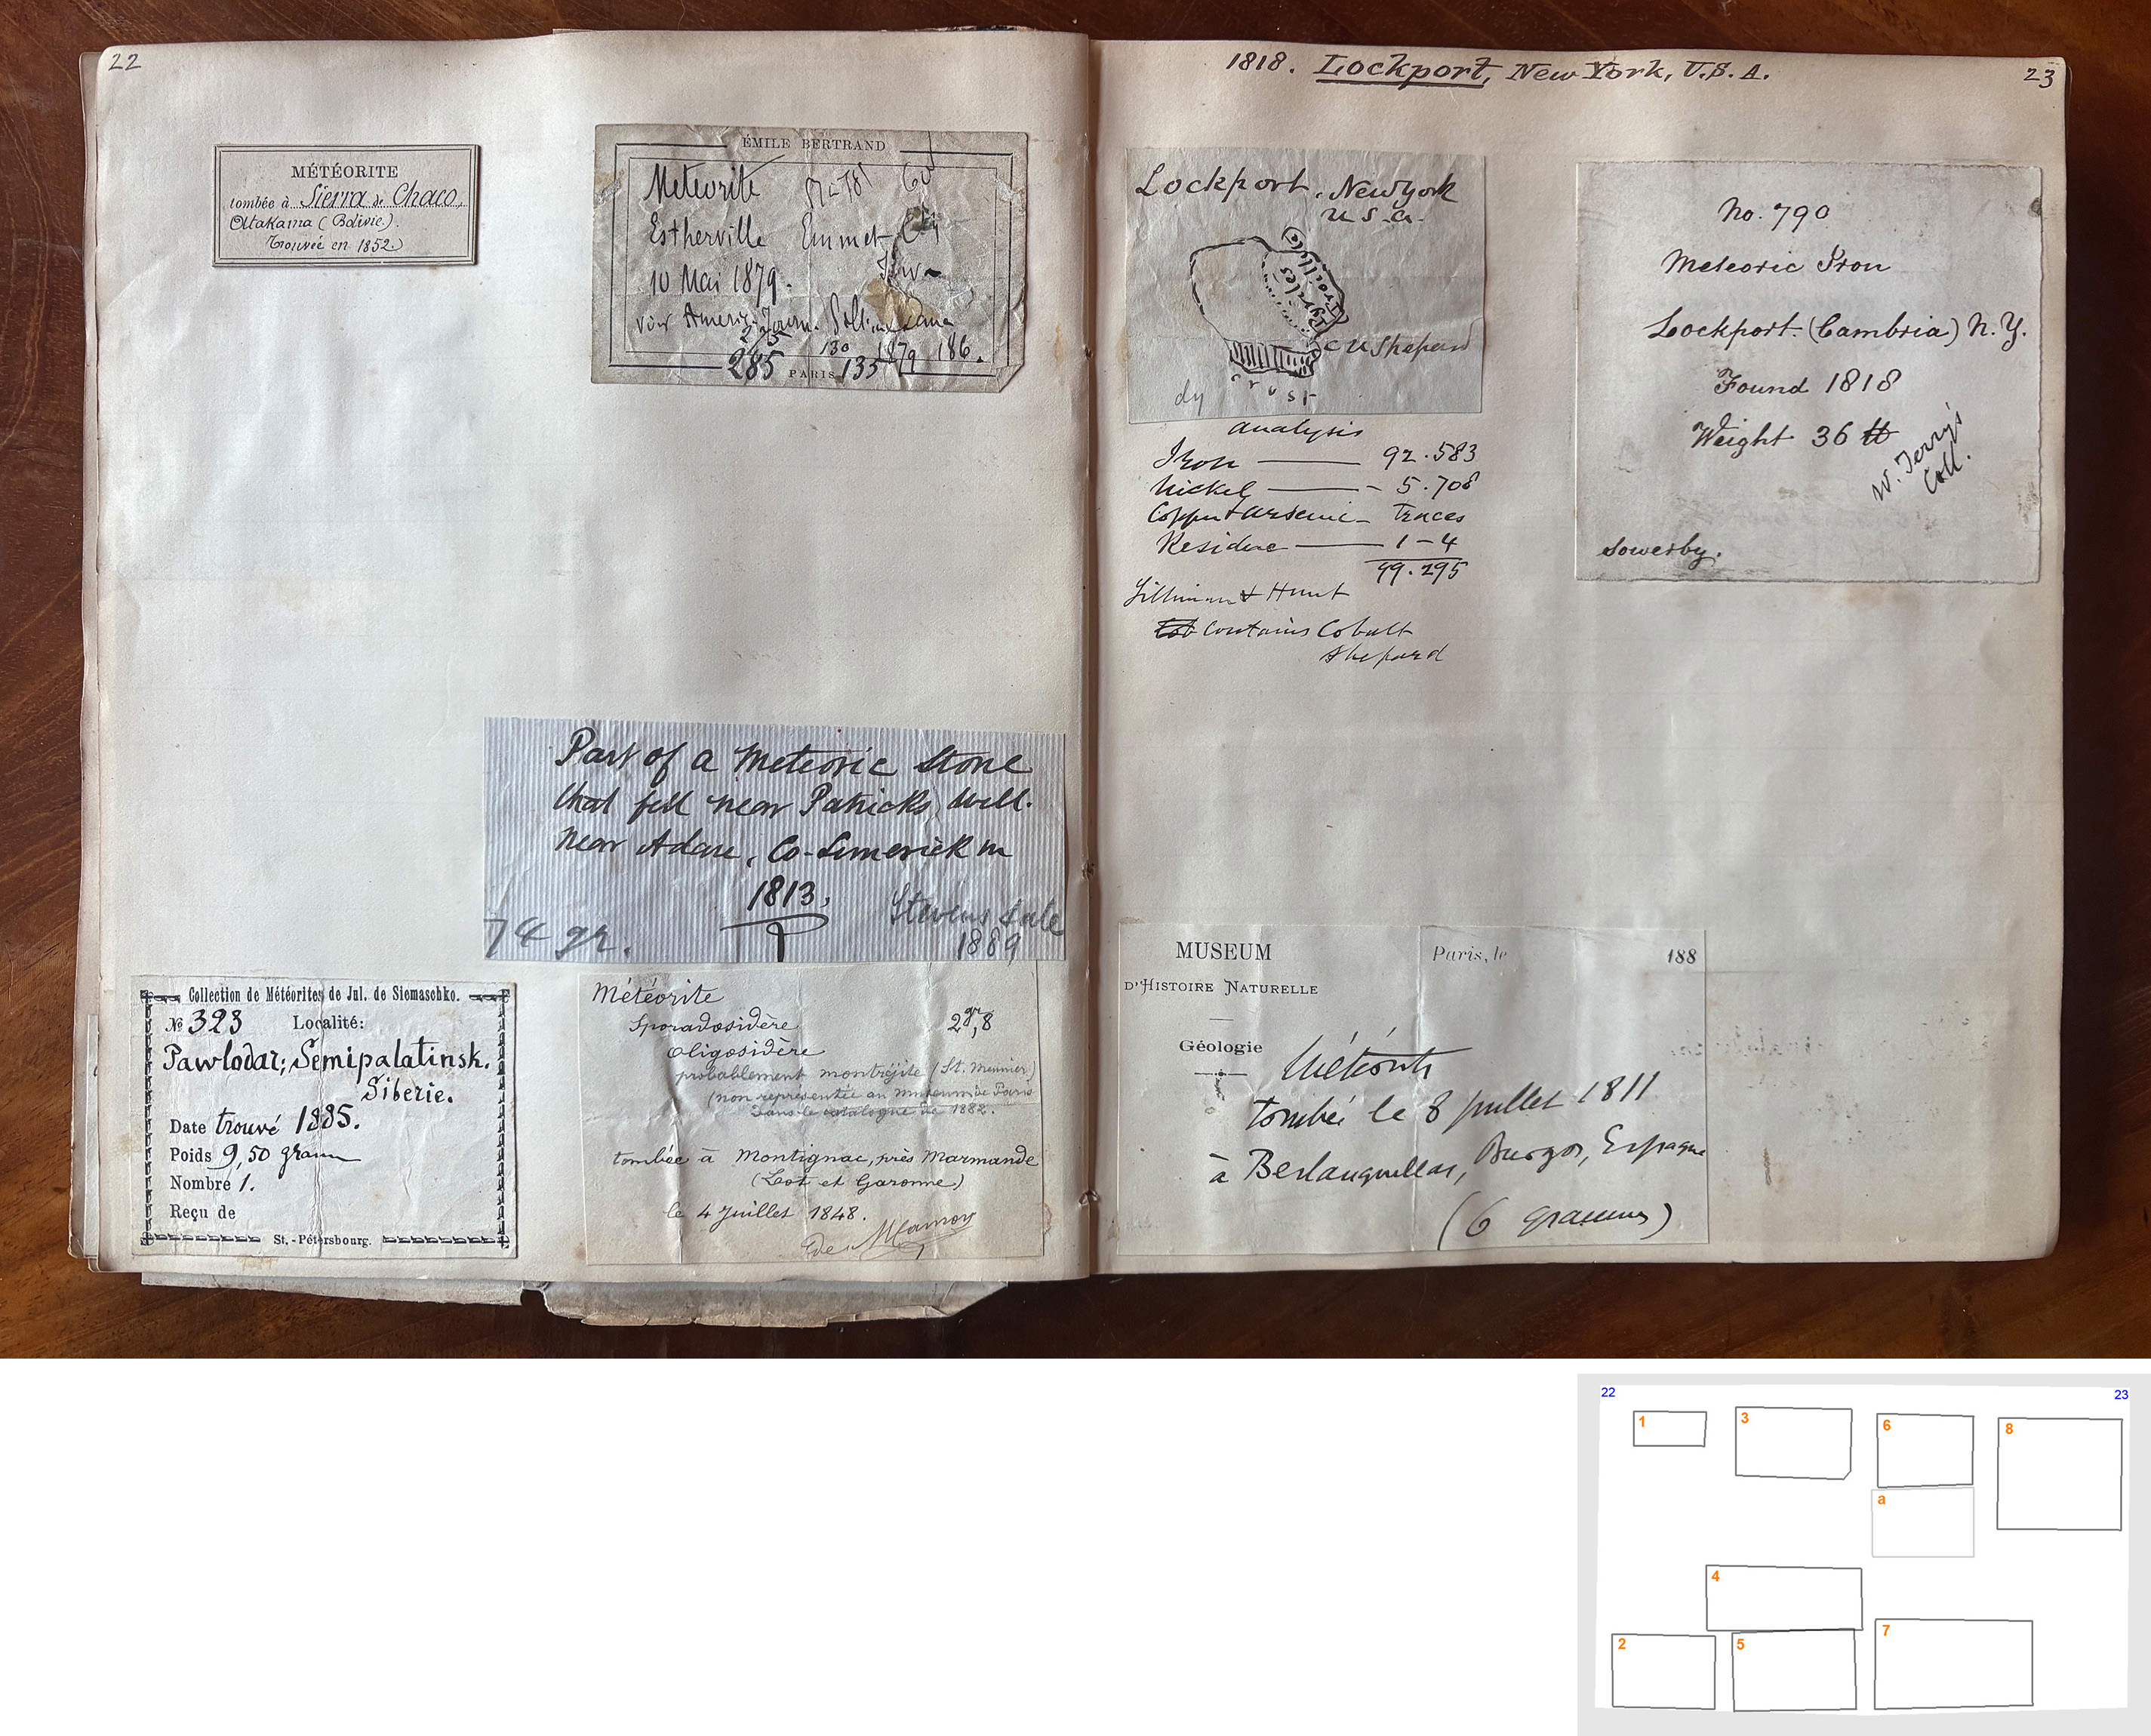 22
MÉTÉORITE
tombée à Sierra de Chaco,
Attakama (Bolivie).
Trouvée en 1852.
ÉMILE BERTRAND
Meteorite
Estherville Emmet Cty
Iowa
10 Mai 1879.
voir Americ. Journ. Silliman Dana
130 1879 186.
285 PARIS 135
Part of a Meteoric Stone
that fell near Patricks Well.
near Adare, Co-Limerick in
1813.
74 gr.
Stevens sale
1889
Collection de Météorites de Jul. de Siemaschko.
№ 323 Localité:
Pawlodar; Semipalatinsk.
Siberie.
Date trouvé 1885.
Poids 9,50 gramm
Nombre 1.
Reçu de
St.-Pétersbourg.
Météorite
Sporadosidère 2gr,8
Oligosidère
probablement montréjite (St. Meunier)
(non représentée au muséum de Paris
dans le catalogue de 1882.
tombée à Montignac, près Marmande
(Lot et Garonne)
le 4 Juillet 1848.
1818. Lockport, New York, U.S.A.
23
Lockport. New York
U.S.A.
Pyrites
Troilite
C U Shepard
crust
Analysis
Iron — 92.583
Nickel — 5.708
Copper & Arsenic — Traces
Residue — 1-4
99.295
Silliman & Hunt
Contains Cobalt
Shepard
No. 790
Meteoric Iron
Lockport (Cambria) N.Y.
Found 1818
Weight 36 lb
W. Terry's
Coll.
Sowerby.
MUSEUM
D'HISTOIRE NATURELLE
Géologie
Paris, le 188
Météorite
tombée le 8 juillet 1811
à Berlanguillas, Burgos, Espagne
(6 grammes)
22
23
1
3
6
8
a
4
2
5
7